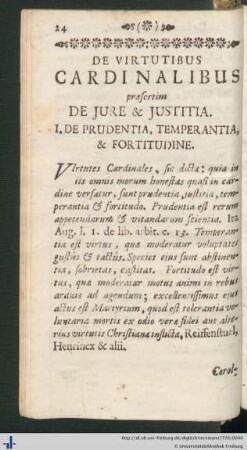 24 (*)
DE VIRTUTIBUS
CARDINALIBUS
præsertim
DE JURE & JUSTITIA.
I. DE PRUDENTIA, TEMPERANTIA,
& FORTITUDINE.
VIrtutes Cardinales, sic dictæ: quia in
iis omnis morum honestas quasi in car-
dine versatur, sunt prudentia, justitia, tem-
perantia & fortitudo. Prudentia est rerum
appetendarum & vitandarum scientia. Ita
Aug. l. 1. de lib. arbit. c. 13. Temperan-
tia est virtus, quæ moderatur voluptates
gustûs & tactûs. Species ejus sunt abstinen-
tia, sobrietas, castitas. Fortitudo est vir-
tus, quæ moderatur motus animi in rebus
arduis ad agendum; excellentissimus ejus
actus est Martyrium, quod est tolerantia vo-
luntaria mortis ex odio veræ fidei aut alte-
rius virtutis Christianæ inflicta, Reiffenstuel,
Henrinex & alii.
Corol-
http://dl.ub.uni-freiburg.de/diglit/
© Universitätsbibliothek Freiburg